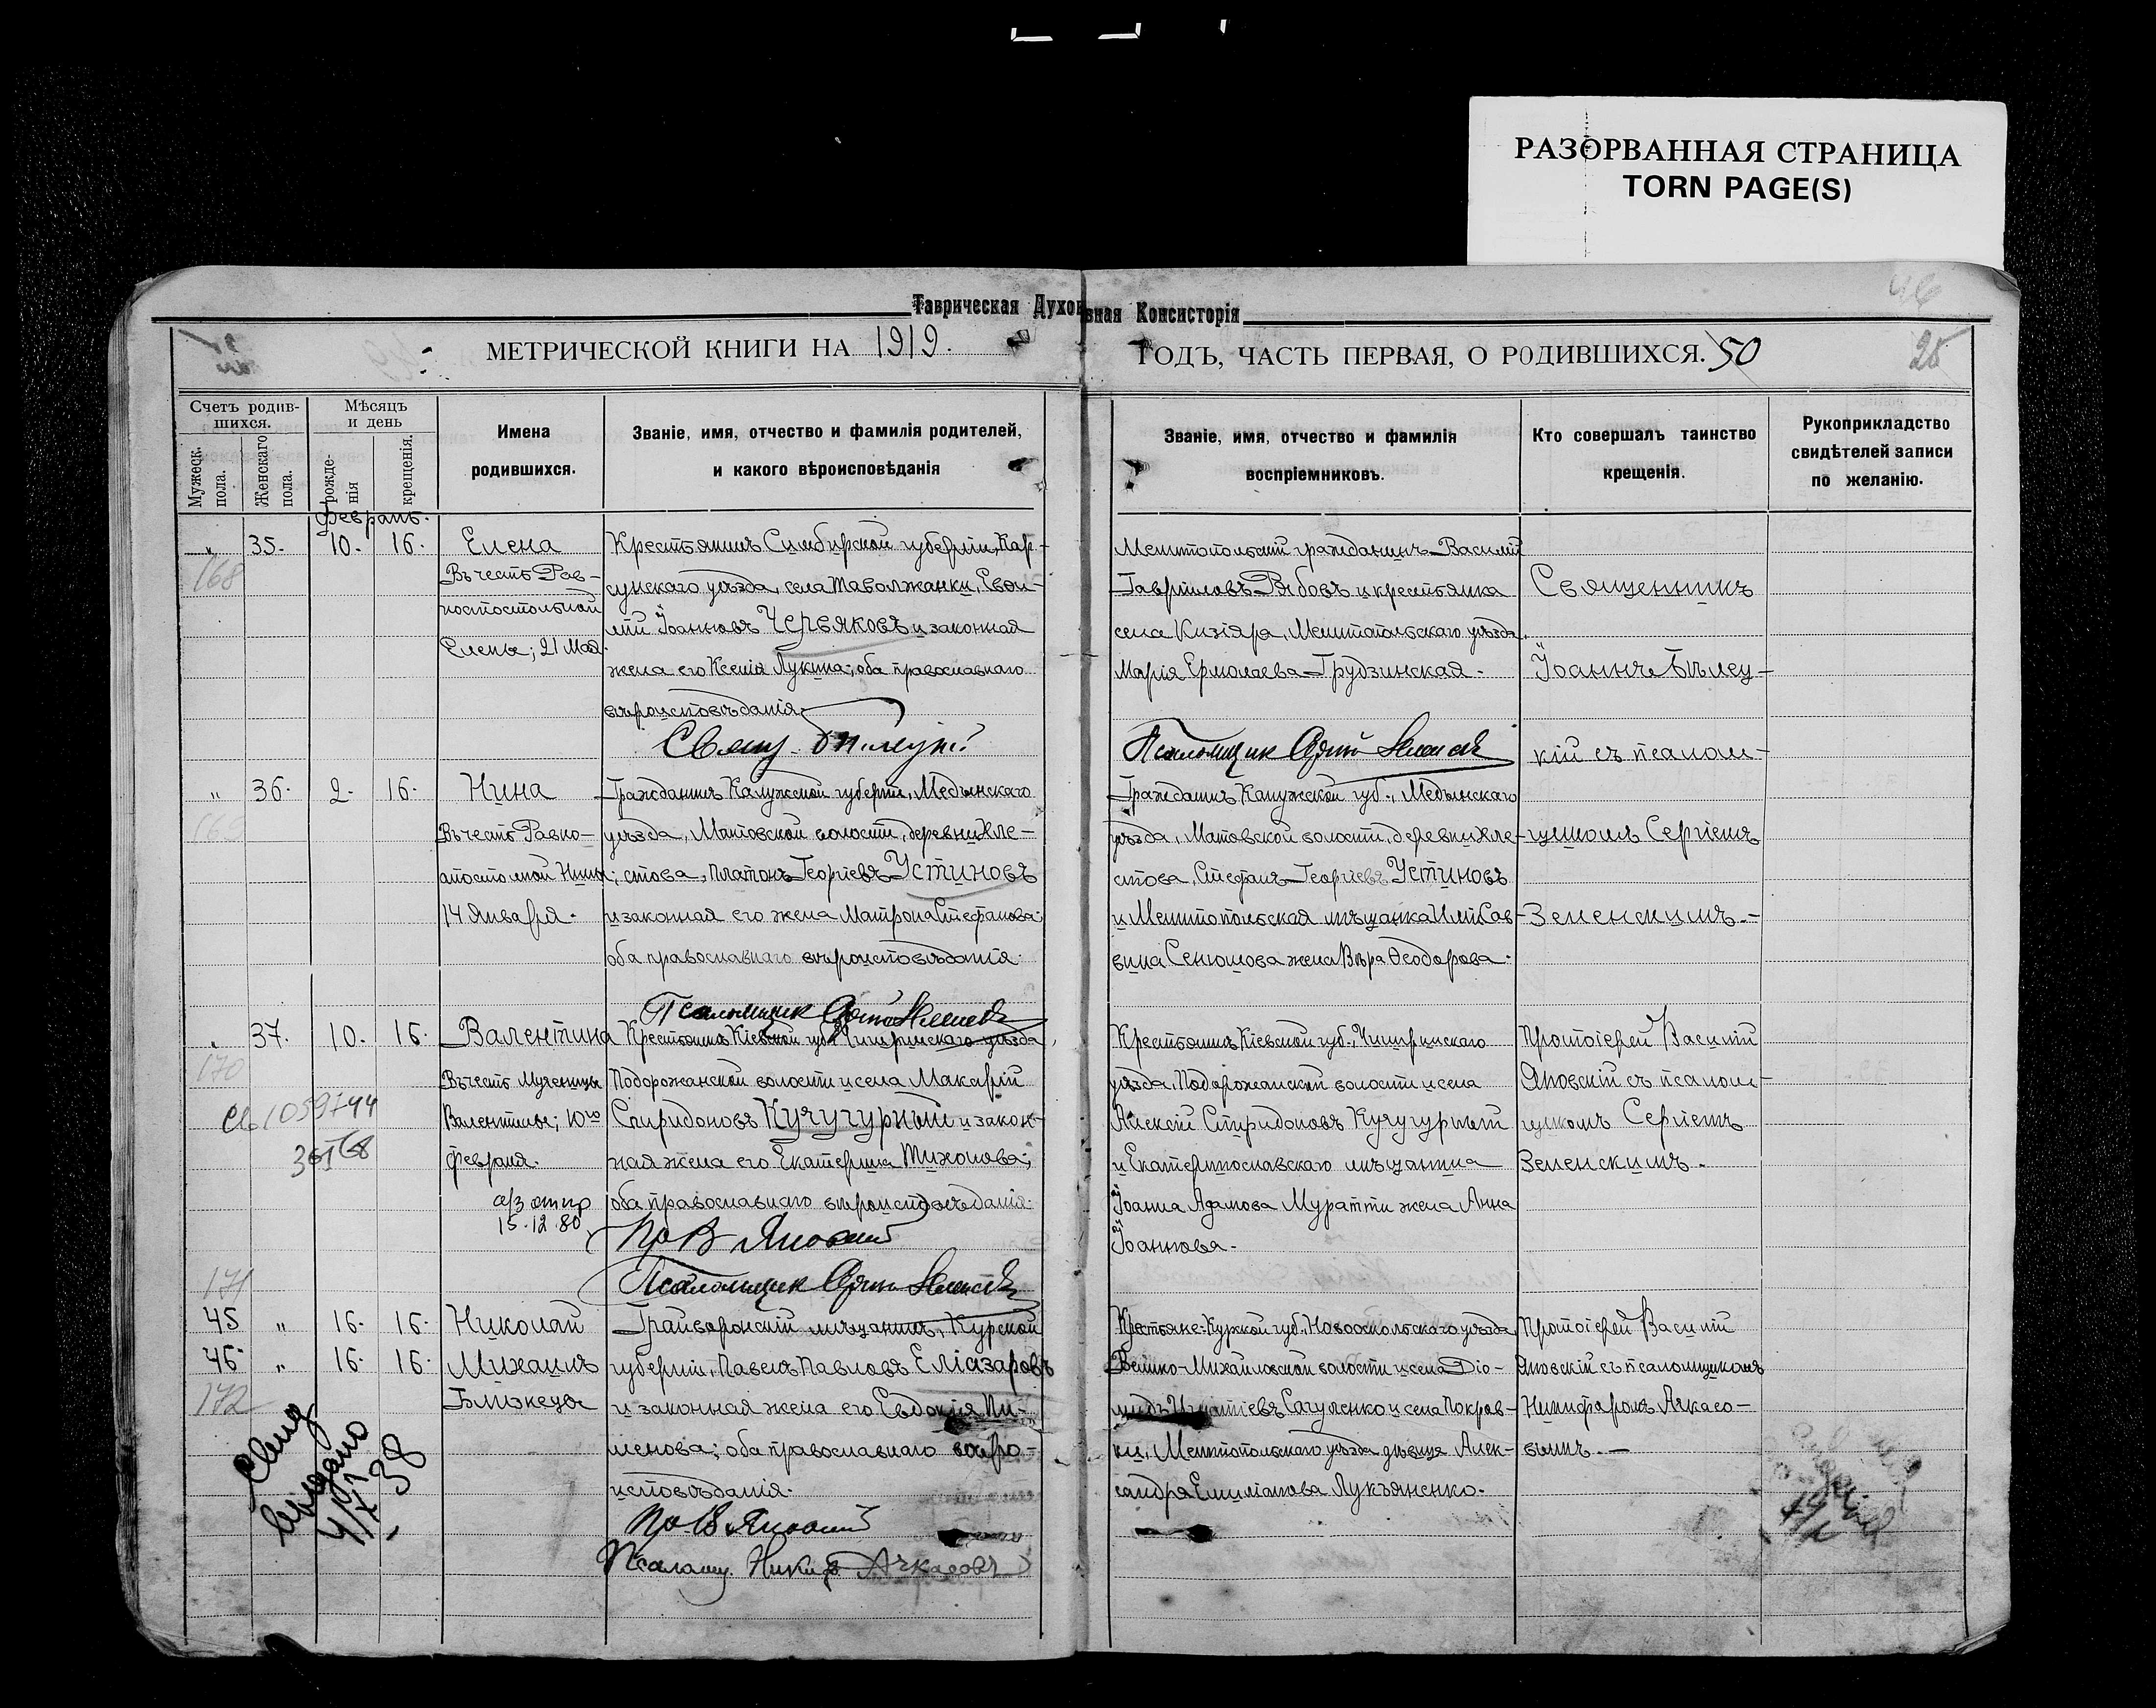 РАЗОРВАННАЯ СТРАНИЦА
TORN PAGE(S)
Таврическая Духовная Консисторія
46
МЕТРИЧЕСКОЙ КНИГИ НА 1919.
ГОДЪ, ЧАСТЬ ПЕРВАЯ, О РОДИВШИХСЯ. 50
25
Счетъ родив-
шихся.
Мужеск. пола.
Женскаго пола.
Мѣсяцъ
и день
рожде-
нія
крещенія.
Имена
родившихся.
Званіе, имя, отчество и фамилія родителей,
и какого вѣроисповѣданія
Званіе, имя, отчество и фамилія
воспріемниковъ.
Кто совершалъ таинство
крещенія.
Рукоприкладство
свидѣтелей записи
по желанію.
Февраль.
" 35. 10. 16.
168
Елена
Въ честь Рав-
ноапостольной
Елены; 21 Мая.
Крестьянинъ Симбирской губерніи, Кар-
сунскаго уѣзда, села Таволжанки,
Іоанновъ Червяковъ и законная
жена его Ксенія Лукина; оба православнаго
вѣроисповѣданія.
Свящ.
Мелитопольскій гражданинъ Василій
Гавріиловъ Рябовъ и крестьянка
села Кизіяра, Мелитопольскаго уѣзда
Марія Ермолаева Грудзинская.
Псаломщик
Священникъ
Іоаннъ Бѣлеу-
кій съ псалом-
щикомъ Сергіемъ
Зеленскимъ.
" 36. 2. 16.
Нина
Въ честь Равно-
апостольной Нины;
14 Января.
Гражданинъ Калужской губерніи, Медынскаго
уѣзда, Матовской волости, деревни Хле-
стова, Платонъ Георгіевъ Устиновъ
и законная его жена Матрона Стефанова;
оба православнаго вѣроисповѣданія.
Псаломщик
Гражданинъ Калужской губ., Медынскаго
уѣзда, Матовской волости, деревни Хле-
стова, Стефанъ Георгіевъ Устиновъ
и Мелитопольская мѣщанка
Сенюшова жена Вѣра Ѳеодорова.
37. 10. 16.
170
Валентина
Въ честь Мученицы
Валентины; 10го
Февраля.
15.12.80
Крестьянинъ Кіевской губ. Чигиринскаго уѣзда,
Подорожанской волости и села Макарій
Спиридоновъ Кучугурный и закон-
ная жена его Екатерина Тихонова;
оба православнаго вѣроисповѣданія.
Пр В Яновскій
Псаломщик
Крестьянинъ Кіевской губ., Чигиринскаго
уѣзда, Подорожанской волости и села
Алексій Спиридоновъ Кучугурный
и Екатеринославскаго мѣщанина
Іоанна Адамова Муратти жена Анна
Іоаннова.
Протоіерей Василій
Яновскій съ псалом-
щикомъ Сергіемъ
Зеленскимъ.
171
45 " 16. 16.
46 " 16. 16.
172
Николай
Михаилъ
Близнецы
Свид
выдано
4/IX 38
Грайворонскій мѣщанинъ, Курской
губерніи, Павелъ Павловъ Еліазаровъ
и законная жена его Евдокія Пи-
менова; оба православнаго вѣро-
исповѣданія.
Пр В Яновскій
Псаломщ. Никиф Ачкасовъ
Крестьяне: Курской губ., Новооскольскаго уѣзда,
Велико-Михайловской волости и села Діо-
мидъ Игнатіевъ Сагуленко и села Покров-
ки, Мелитопольскаго уѣзда дѣвица Алек-
сандра Емиліанова Лукъяненко.
Протоіерей Василій
Яновскій съ псаломщикомъ
Никифоромъ Ачкасо-
вымъ.